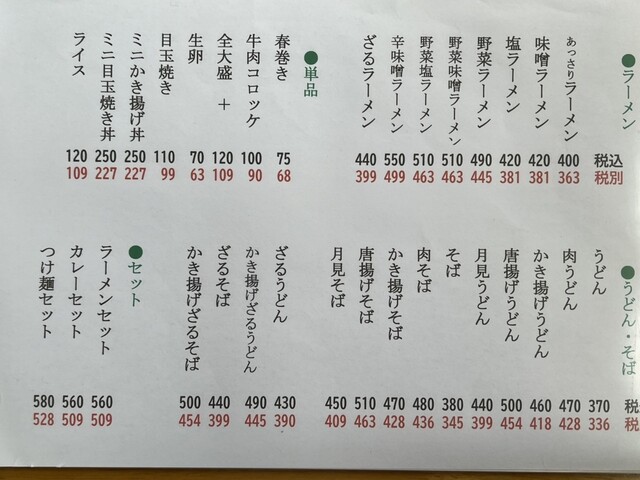 ●ラーメン 税込 税別
あっさりラーメン 400 363
味噌ラーメン 420 381
塩ラーメン 420 381
野菜ラーメン 490 445
野菜味噌ラーメン 510 463
野菜塩ラーメン 510 463
辛味噌ラーメン 550 499
ざるラーメン 440 399
●単品
春巻き 75 68
牛肉コロッケ 100 90
全大盛 + 120 109
生卵 70 63
目玉焼き 110 99
ミニかき揚げ丼 250 227
ミニ目玉焼き丼 250 227
ライス 120 109
●うどん・そば 税 税
うどん 370 336
肉うどん 470 428
かき揚げうどん 460 418
唐揚げうどん 500 454
月見うどん 440 399
そば 380 345
肉そば 480 436
かき揚げそば 470 428
唐揚げそば 510 463
月見そば 450 409
ざるうどん 430 390
かき揚げざるうどん 490 445
ざるそば 440 399
かき揚げざるそば 500 454
●セット
ラーメンセット 560 509
カレーセット 560 509
つけ麺セット 580 528